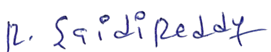 R. SaidiReddy